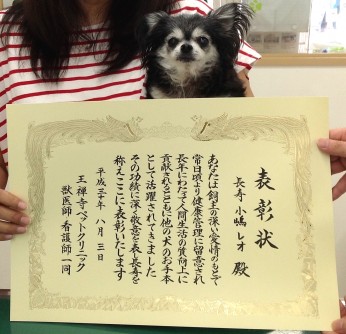 表彰状
長寿 小嶋 レオ 殿
あなたは飼主の深い愛情のもとで
常日頃より健康管理に留意され
長年にわたって人間生活の質向上に
貢献されるとともに他の犬のお手本
として活躍されてきました
その功績に深く敬意を表し長寿を
称えここに表彰いたします
平成三十年 八月 三日
王禅寺ペットクリニック
獣医師 看護師一同